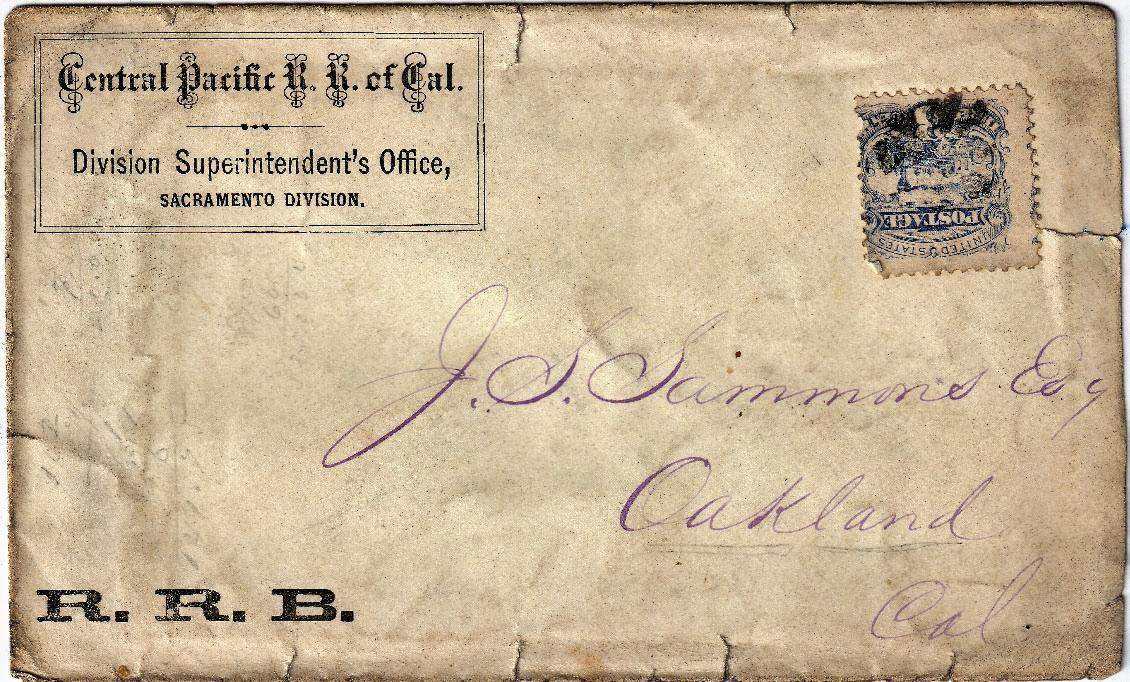 Central Pacific R. R. of Cal.
Division Superintendent's Office,
SACRAMENTO DIVISION.
POSTAGE
UNITED STATES
J. S. Sammons Esq
Oakland
Cal.
R. R. B.